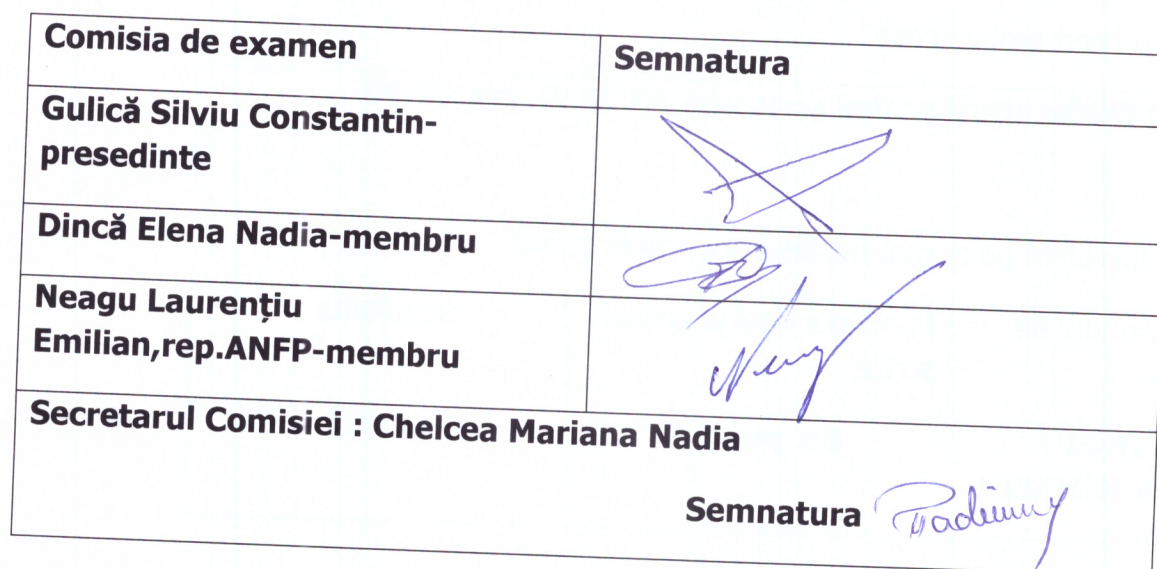 Comisia de examen
Semnatura
Gulică Silviu Constantin-
presedinte
Dincă Elena Nadia-membru
Neagu Laurențiu
Emilian,rep.ANFP-membru
Secretarul Comisiei : Chelcea Mariana Nadia
Semnatura